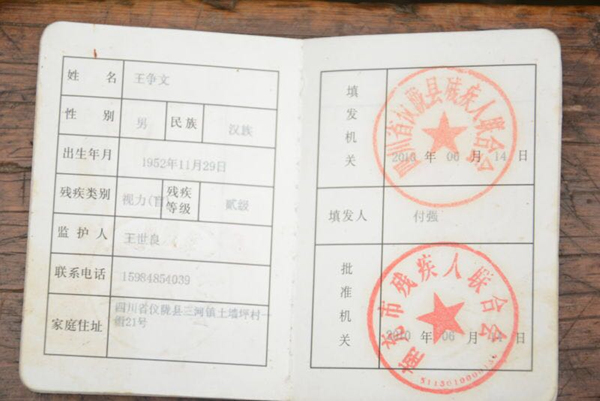 姓 名 王争文
性 别 男 民族 汉族
出生年月 1952年11月29日
残疾类别 视力(盲 残疾等级 贰级
监护人 王世良
联系电话 15984854039
家庭住址 四川省仪陇县三河镇土墙坪村一
街21号
填发机关 四川省仪陇县残疾人联合会
2010 年 06 月 14 日
填发人 付强
批准机关 市残疾人联合会
2010 年 06 月 14 日